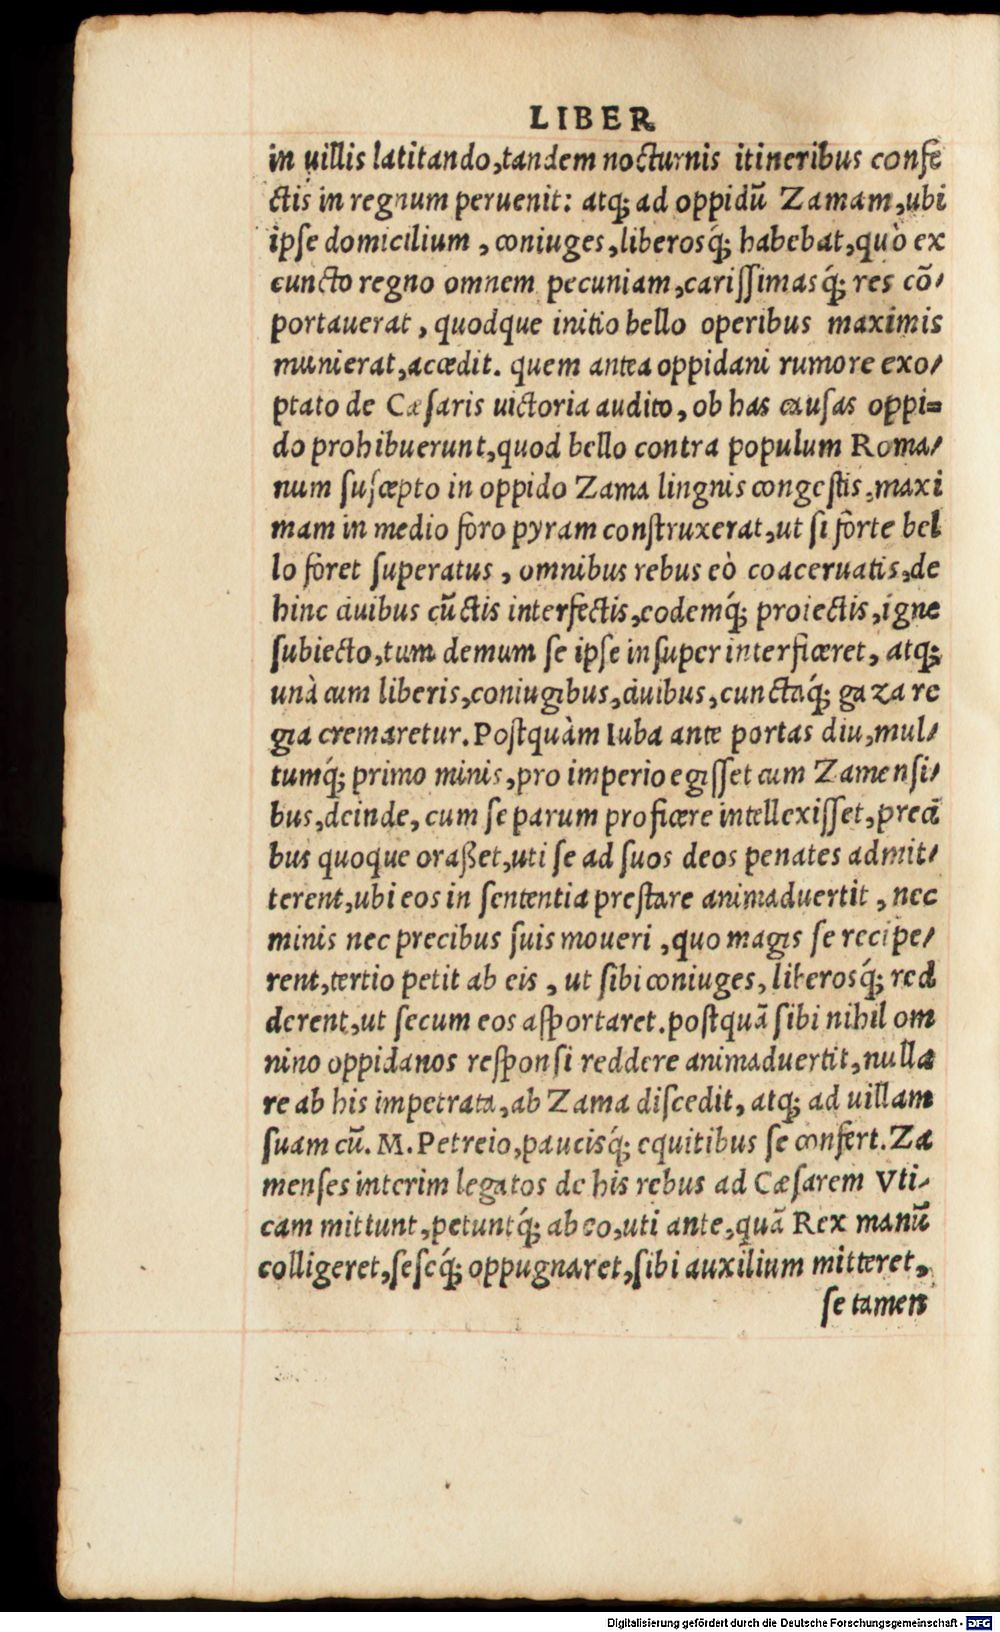 LIBER
in uillis latitando, tandem nocturnis itineribus confe
ctis in regnum peruenit: atq; ad oppidũ Zamam, ubi
ipſe domicilium, coniuges, liberosq́; habebat, quò ex
cuncto regno omnem pecuniam, cariſſimasq́; res cõ/
portauerat, quodque initio bello operibus maximis
munierat, accedit. quem antea oppidani rumore exo/
ptato de Cæſaris uictoria audito, ob has cauſas oppi=
do prohibuerunt, quod bello contra populum Roma/
num ſuſcepto in oppido Zama lingnis congeſtis, maxi
mam in medio foro pyram conſtruxerat, ut ſi forte bel
lo foret ſuperatus, omnibus rebus eò coaceruatis, de
hinc ciuibus cũctis interfectis, eodemq́; proiectis, igne
ſubiecto, tum demum ſe ipſe inſuper interficeret, atq;
unà cum liberis, coniugibus, ciuibus, cunctaq́; gaza re
gia cremaretur. Poſtquàm Iuba ante portas diu, mul/
tumq́; primo minis, pro imperio egiſſet cum Zamenſi/
bus, deinde, cum ſe parum proficere intellexiſſet, preci
bus quoque oraßet, uti ſe ad ſuos deos penates admit/
terent, ubi eos in ſententia preſtare animaduertit, nec
minis nec precibus ſuis moueri, quo magis ſe recipe/
rent, tertio petit ab eis, ut ſibi coniuges, liberosq́; red
derent, ut ſecum eos aſportaret. poſtquã ſibi nihil om
nino oppidanos reſponſi reddere animaduertit, nulla
re ab his impetrata, ab Zama diſcedit, atq; ad uillam
ſuam cũ. M. Petreio, paucisq́; equitibus ſe confert. Za
menſes interim legatos de his rebus ad Cæſarem Vti-
cam mittunt, petuntq́; ab eo, uti ante, quã Rex manũ
colligeret, ſeſeq́; oppugnaret, ſibi auxilium mitteret,
ſe tamen
Digitalisierung gefördert durch die Deutsche Forschungsgemeinschaft - DFG